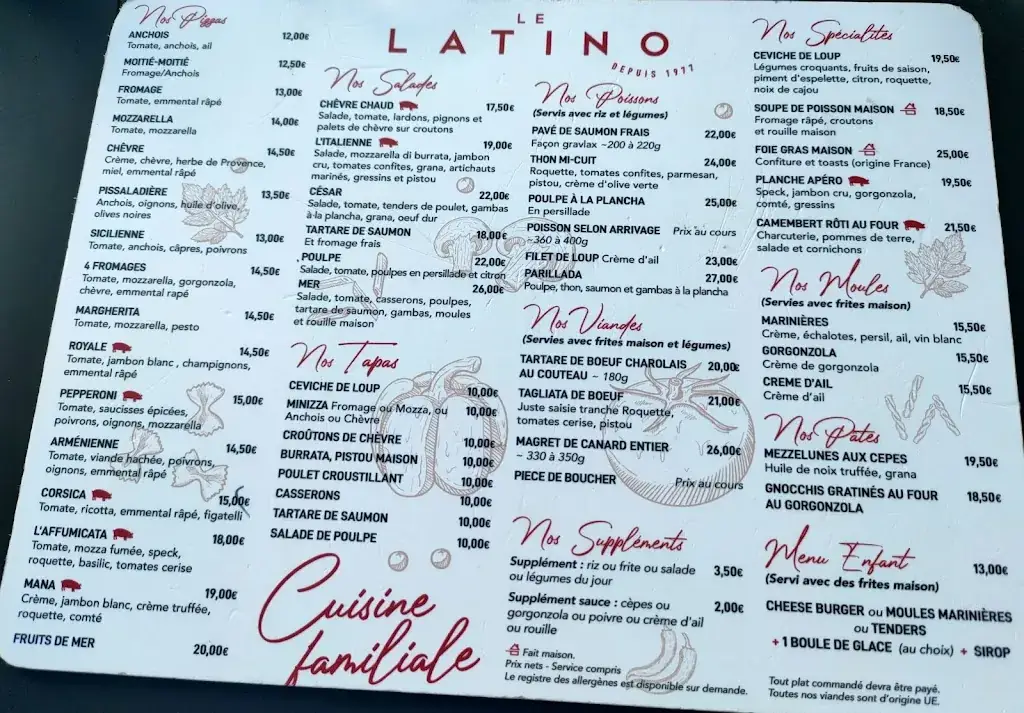 Nos Pizzas
ANCHOIS 12,00€
Tomate, anchois, ail
MOITIÉ-MOITIÉ 12,50€
Fromage/Anchois
FROMAGE 13,00€
Tomate, emmental râpé
MOZZARELLA 14,00€
Tomate, mozzarella
CHÈVRE 14,50€
Crème, chèvre, herbe de Provence,
miel, emmental râpé
PISSALADIÈRE 13,50€
Anchois, oignons, huile d'olive,
olives noires
SICILIENNE 13,00€
Tomate, anchois, câpres, poivrons
4 FROMAGES 14,50€
Tomate, mozzarella, gorgonzola,
chèvre, emmental rapé
MARGHERITA 14,50€
Tomate, mozzarella, pesto
ROYALE 14,50€
Tomate, jambon blanc , champignons,
emmental râpé
PEPPERONI 15,00€
Tomate, saucisses épicées,
poivrons, oignons, mozzarella
ARMÉNIENNE 14,50€
Tomate, viande hachée, poivrons,
oignons, emmental râpé
CORSICA 15,00€
Tomate, ricotta, emmental râpé, figatelli
L'AFFUMICATA 18,00€
Tomate, mozza fumée, speck,
roquette, basilic, tomates cerise
MANA 19,00€
Crème, jambon blanc, crème truffée,
roquette, comté
FRUITS DE MER 20,00€
LE
LATINO
DEPUIS 1977
Nos Salades
CHÈVRE CHAUD 17,50€
Salade, tomate, lardons, pignons et
palets de chèvre sur croutons
L'ITALIENNE 19,00€
Salade, mozzarella di burrata, jambon
cru, tomates confites, grana, artichauts
marinés, gressins et pistou
CÉSAR 22,00€
Salade, tomate, tenders de poulet, gambas
à la plancha, grana, oeuf dur
TARTARE DE SAUMON 18,00€
Et fromage frais
POULPE 22,00€
Salade, tomate, poulpes en persillade et citron
MER 26,00€
Salade, tomate, casserons, poulpes,
tartare de saumon, gambas, moules
et rouille maison
Nos Tapas
CEVICHE DE LOUP 10,00€
MINIZZA Fromage ou Mozza, ou 10,00€
Anchois ou Chèvre
CROÛTONS DE CHÈVRE 10,00€
BURRATA, PISTOU MAISON 10,00€
POULET CROUSTILLANT 10,00€
CASSERONS 10,00€
TARTARE DE SAUMON 10,00€
SALADE DE POULPE 10,00€
Cuisine
familiale
Nos Poissons
(Servis avec riz et légumes)
PAVÉ DE SAUMON FRAIS 22,00€
Façon gravlax ~200 à 220g
THON MI-CUIT 24,00€
Roquette, tomates confites, parmesan,
pistou, crème d'olive verte
POULPE À LA PLANCHA 25,00€
En persillade
POISSON SELON ARRIVAGE Prix au cours
~360 à 400g
FILET DE LOUP Crème d'ail 23,00€
PARILLADA 27,00€
Poulpe, thon, saumon et gambas à la plancha
Nos Viandes
(Servies avec frites maison et légumes)
TARTARE DE BOEUF CHAROLAIS 20,00€
AU COUTEAU ~ 180g
TAGLIATA DE BOEUF 21,00€
Juste saisie tranche Roquette,
tomates cerise, pistou
MAGRET DE CANARD ENTIER 26,00€
~ 330 à 350g
PIECE DE BOUCHER Prix au cours
Nos Suppléments
Supplément : riz ou frite ou salade 3,50€
ou légumes du jour
Supplément sauce : cèpes ou 2,00€
gorgonzola ou poivre ou crème d'ail
ou rouille
Fait maison.
Prix nets - Service compris
Le registre des allergènes est disponible sur demande.
Nos Spécialités
CEVICHE DE LOUP 19,50€
Légumes croquants, fruits de saison,
piment d'espelette, citron, roquette,
noix de cajou
SOUPE DE POISSON MAISON 18,50€
Fromage râpé, croutons
et rouille maison
FOIE GRAS MAISON 25,00€
Confiture et toasts (origine France)
PLANCHE APÉRO 19,50€
Speck, jambon cru, gorgonzola,
comté, gressins
CAMEMBERT RÔTI AU FOUR 21,50€
Charcuterie, pommes de terre,
salade et cornichons
Nos Moules
(Servies avec frites maison)
MARINIÈRES 15,50€
Crème, échalotes, persil, ail, vin blanc
GORGONZOLA 15,50€
Crème de gorgonzola
CREME D'AIL 15,50€
Crème d'ail
Nos Pâtes
MEZZELUNES AUX CEPES 19,50€
Huile de noix truffée, grana
GNOCCHIS GRATINÉS AU FOUR 18,50€
AU GORGONZOLA
Menu Enfant 13,00€
(Servi avec des frites maison)
CHEESE BURGER ou MOULES MARINIÈRES
ou TENDERS
+ 1 BOULE DE GLACE (au choix) + SIROP
Tout plat commandé devra être payé.
Toutes nos viandes sont d'origine UE.